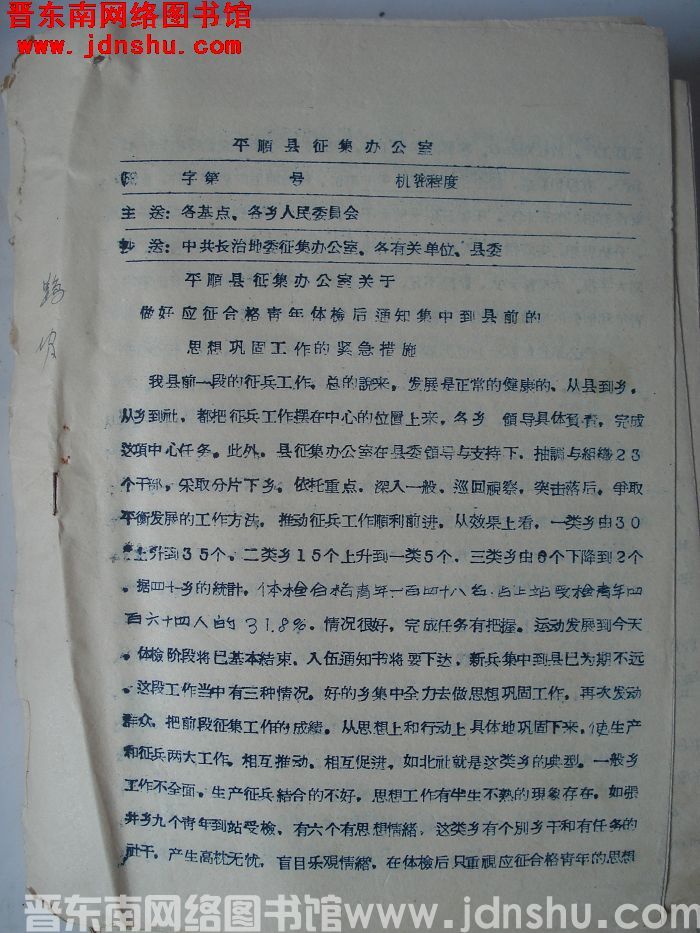 晋东南网络图书馆
www.jdnshu.com
平順县征集办公室
字第 号 机密程度
主 送：各基点、各乡人民委員会
抄 送：中共长治地委征集办公室、各有关单位、县委
平順县征集办公室关于
做好应征合格青年体检后通知集中到县前的
思想巩固工作的紧急措施
我县前一段的征兵工作，总的說来，发展是正常的健康的，从县到乡，
从乡到社，都把征兵工作摆在中心的位置上来，各乡 領导具体負責，完成
这項中心任务。此外，县征集办公室在县委領导与支持下，抽調与組織23
个干部，采取分片下乡，依托重点，深入一般，巡回視察，突击落后，爭取
平衡发展的工作方法，推动征兵工作順利前进，从效果上看，一类乡由30
上升到35个，二类乡15个上升到一类5个，三类乡由6个下降到2个
，据四十乡的統計，体检合格青年一百四十八名，占上站受检青年四
百六十四人的31.8%，情况很好，完成任务有把握。运动发展到今天
，体检阶段将已基本结束，入伍通知书将要下达，新兵集中到县已为期不远
，这段工作当中有三种情况。好的乡集中全力去做思想巩固工作，再次发动
群众，把前段征集工作的成績，从思想上和行动上具体地巩固下来，使生产
和征兵两大工作，相互推动，相互促进，如北社就是这类乡的典型。一般乡
工作不全面，生产征兵結合的不好，思想工作有半生不熟的現象存在，如張
井乡九个青年到站受檢，有六个有思想情緒，这类乡有个別乡干和有任务的
社干，产生高枕无忧，盲目乐观情緒，在体检后只重視应征合格青年的思想
晋东南网络图书馆 www.jdnshu.com